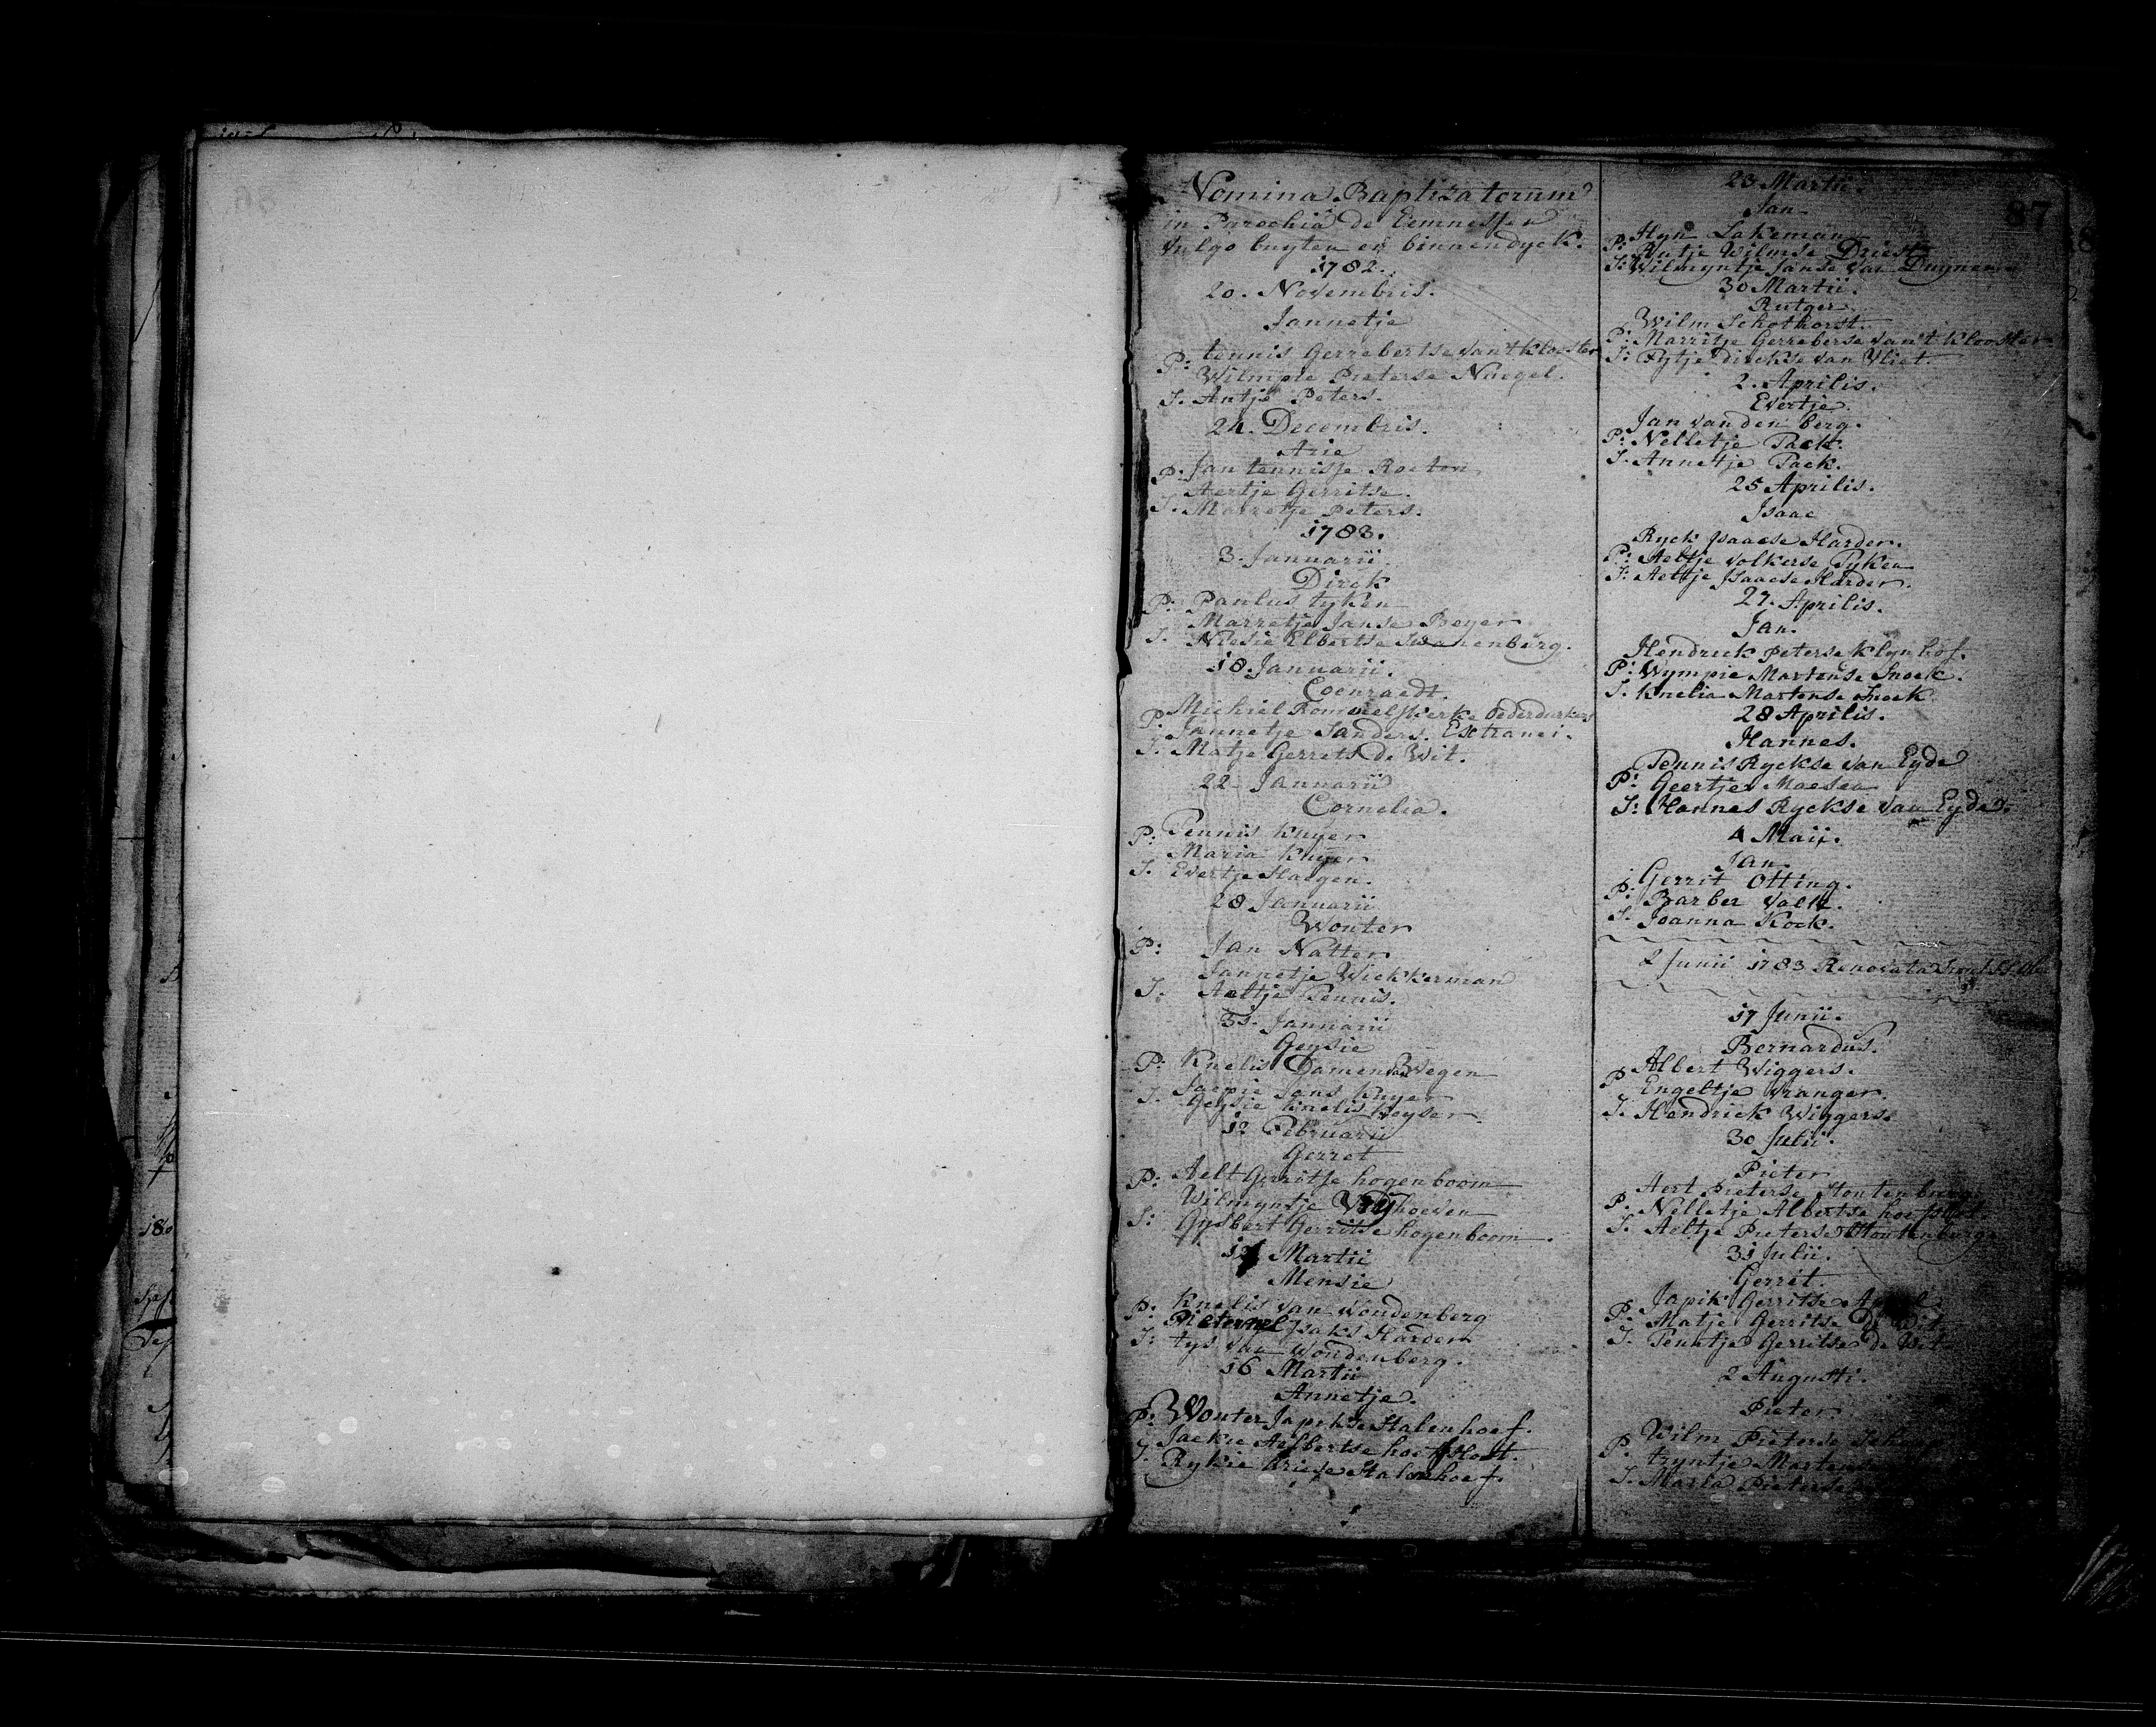 Nomina Baptizatorum
in Parochia de Eemnessen
vulgo buyten en binnendyck.
1782.
20. Novembris.
Jannetje
tennis Gerrebertse van't Klooster
P: Wilmpie Pieterse Nuegel.
S. Antje Peters.
24. Decembris.
Arie
P. Jan tennisse Roeten
Aertje Gerritse.
S. Marretje Peters.
1783.
3. Januarii.
Dirck
P. Paulus tyken
Marretje Janse Beyer
S. Niesie Elbertse Swanenberg.
18. Januarii.
Coenraedt.
Michiel
P. Jannetje Sanders. Extranei.
S. Matje Gerrets de Wit.
22 Januarii
Cornelia.
P: Tennis Kuyer
Maria Kuyer
S. Evertje Haegen.
28 Januarii
Wouter
P: Jan Natter
Jannetje Wiekkerman
S. Aeltje Tennis.
31. Januarii
Geysie
P: Knelis Damen van Wegen
Jaepie Jans Kuyer
S. Geysie Knelis Keyser
12 Februarii
Gerret
P: Aelt Gerritse hogenboom
Wilmyntje Verhoeven
S: Gysbert Gerritse hogenboom.
Martii
Mensie
P. Knelis van woudenberg
Pieternel Isaks Harder
S: tys van woudenberg.
16 Martii
Annetje.
P: Wouter Japikse Stalenhoef.
Jaekie Aelbertse
S. Rykie Briese Stalenhoef.
87
23 Martii.
Jan
Hyn Lakeman
P. Wilmse Driest
S: Wilmyntje Janse van Duynen
30 Martii.
Rutger
Wilm Schothorst.
P: Marritje Gerreberse van't Klooster
S: Fytje dirckse van Vliet
2. Aprilis.
Evertje.
Jan van den berg.
P: Nelletje Pack.
S. Annetje Pack.
25 Aprilis.
Isaac
Ryck Isaacse Harder.
P: Aeltje volkerse Tyken
S: Aeltje Isaacse Harder.
27. Aprilis.
Jan.
Hendrick Peterse Klynhof.
P: Wympie Martense Snoek.
S. Knelia Martense Snoek
28 Aprilis.
Hannes.
Tennis Ryckse van Eyde
P: Geertje Maesen
S: Hannes Ryckse van Eyde.
4 Maii.
Jan.
Gerrit Otting.
P: Barber Valk.
S. Joanna Kock.
2 Junii 1783 Renovata sunt
17 Junii.
Bernardus.
Albert Wiggers.
P Engeltje Vranger.
S. Hendrick Wiggers.
30 Julii.
Pieter
Aert Pieterse Stoutenburg
P. Nelletje Albertse
S. Aeltje Pieterse Stoutenburg
31 Julii.
Gerrit.
Japik Gerritse
P. Matje Gerritse de Wit
S. Tenntje Gerritse de Wit
2 Augusti.
Pieter
Wilm Pieterse
P. tryntje Martense
S. Maria Pieterse